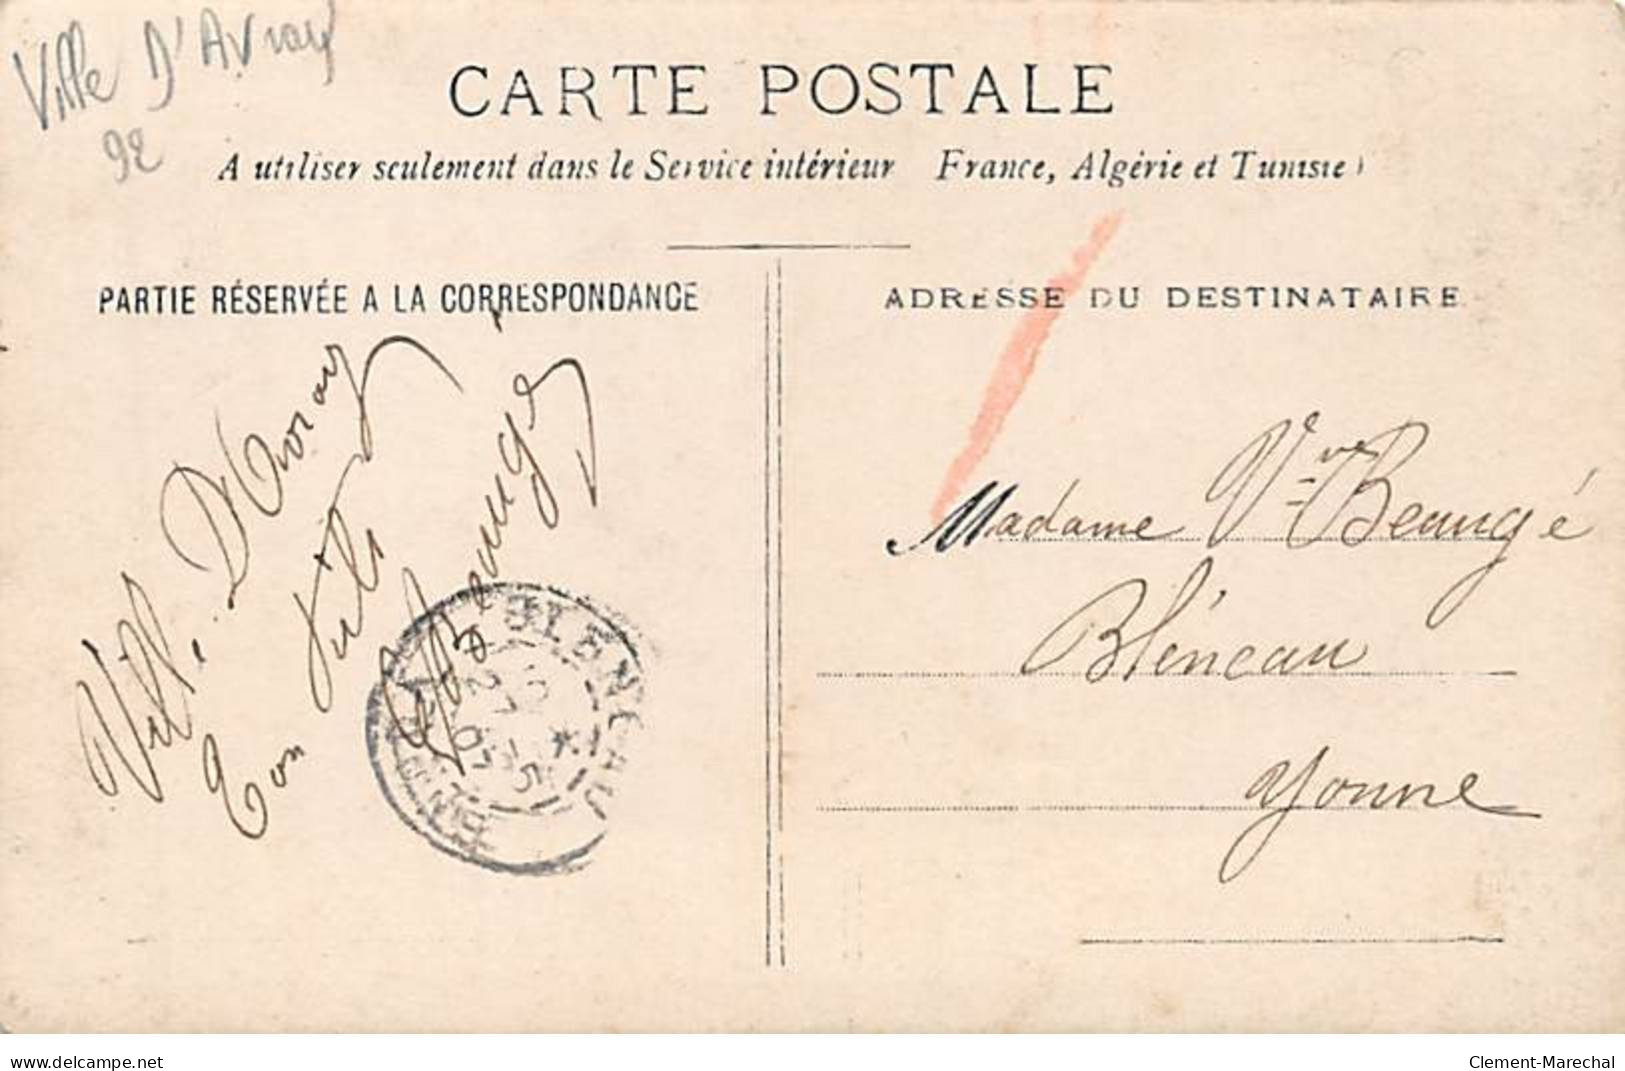 Ville D'Avray
92
CARTE POSTALE
A utiliser seulement dans le Service intérieur France, Algérie et Tunisie)
PARTIE RÉSERVÉE A LA CORRESPONDANCE
ADRESSE DU DESTINATAIRE
Ville D'Avray
Ton fils
Beaugé
BLENEAU
Madame Vve Beaugé
Bléneau
Yonne
www.delcampe.net
Clement-Marechal